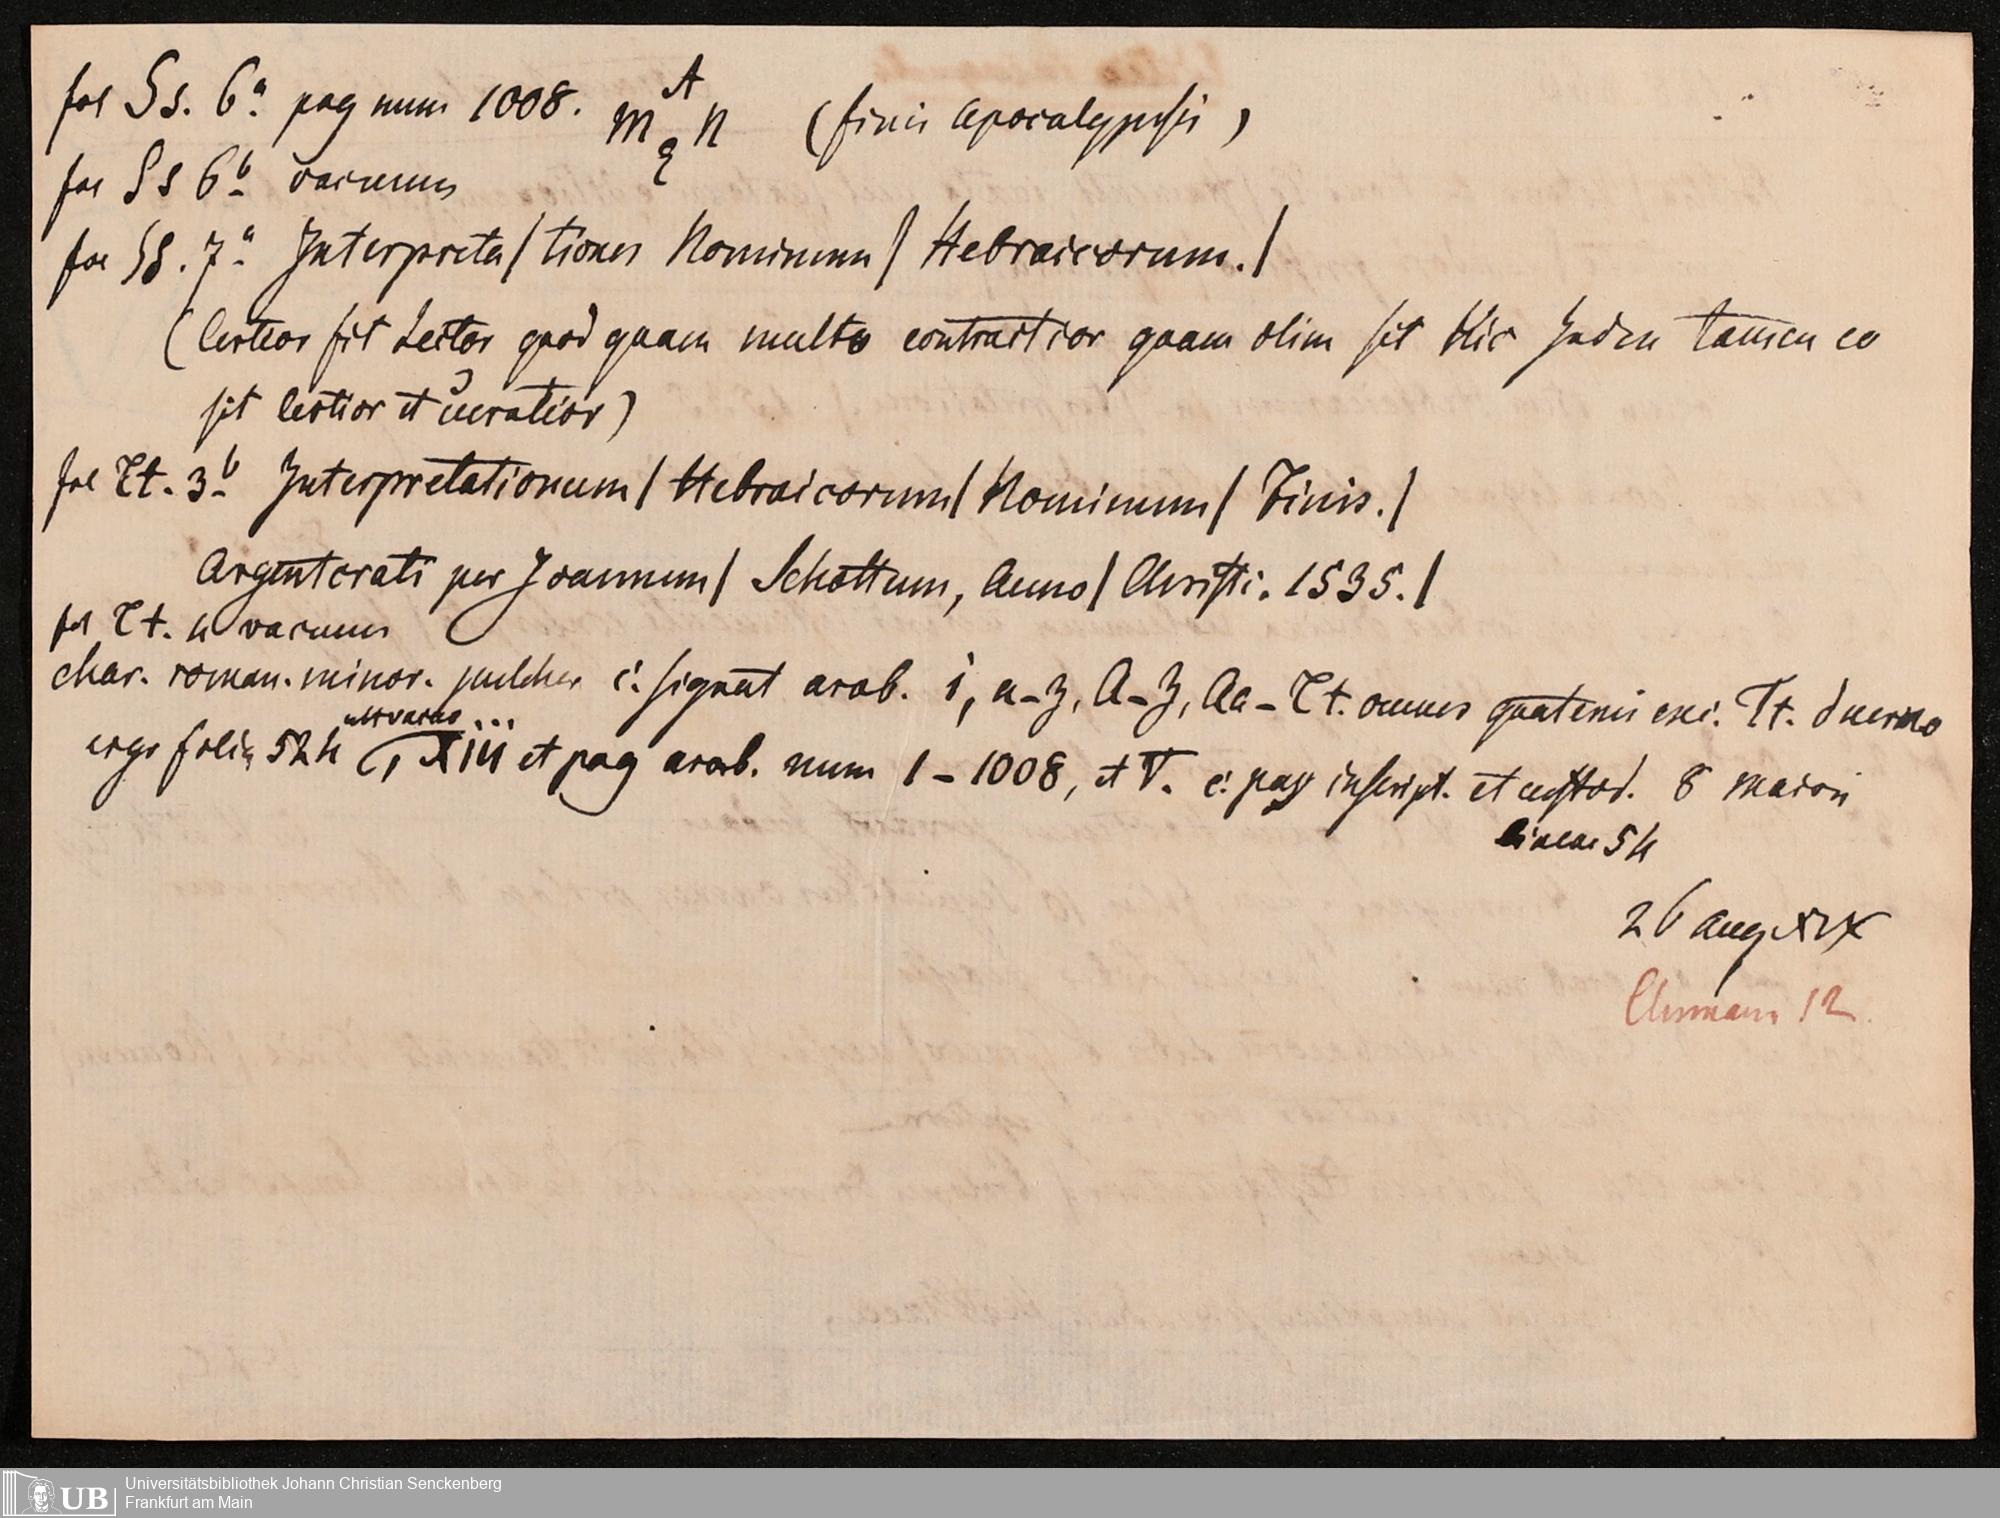 fol Ss. 6a pag num 1008. m A n (finis Apocalypsis)
fol Ss 6b vacuum
fol Ss. 7a Interpreta/tiones Nominum/ Hebraicorum./
(Certior sit Lector quod quam multo contractior quam olim sit hic Index tamen eo
sit certior et veratior)
fol Tt. 3b Interpretationum/ Hebraicorum/ Nominum/ Finis./
Argentorati per Joannem/ Schottum, Anno/ Christi. 1535./
fol Tt. 4 vacuum
char. roman. minor. pulcher c. signat arab. i, a-z, A-Z, Aa-Tt. omnes quaterni exc. Tt. duerno
ergo folia 524 et pag arab. num 1-1008, et T. c. pag inscript. et custod. 8 maiori
lineae 54
26 aug XIX
12
Universitätsbibliothek Johann Christian Senckenberg
Frankfurt am Main
UB